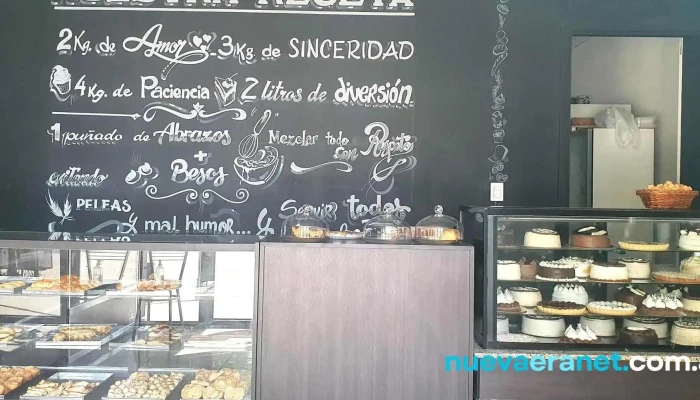 NUESTRA RECETA
2 Kg. de Amor - 3 Kg de SINCERIDAD
4 Kg. de Paciencia 2 litros de diversión
1 puñado de Abrazos Mezclar todo con Respeto
+ Besos
evitando
PELEAS
y mal humor... y Servir todos
nuevaeranet.com.